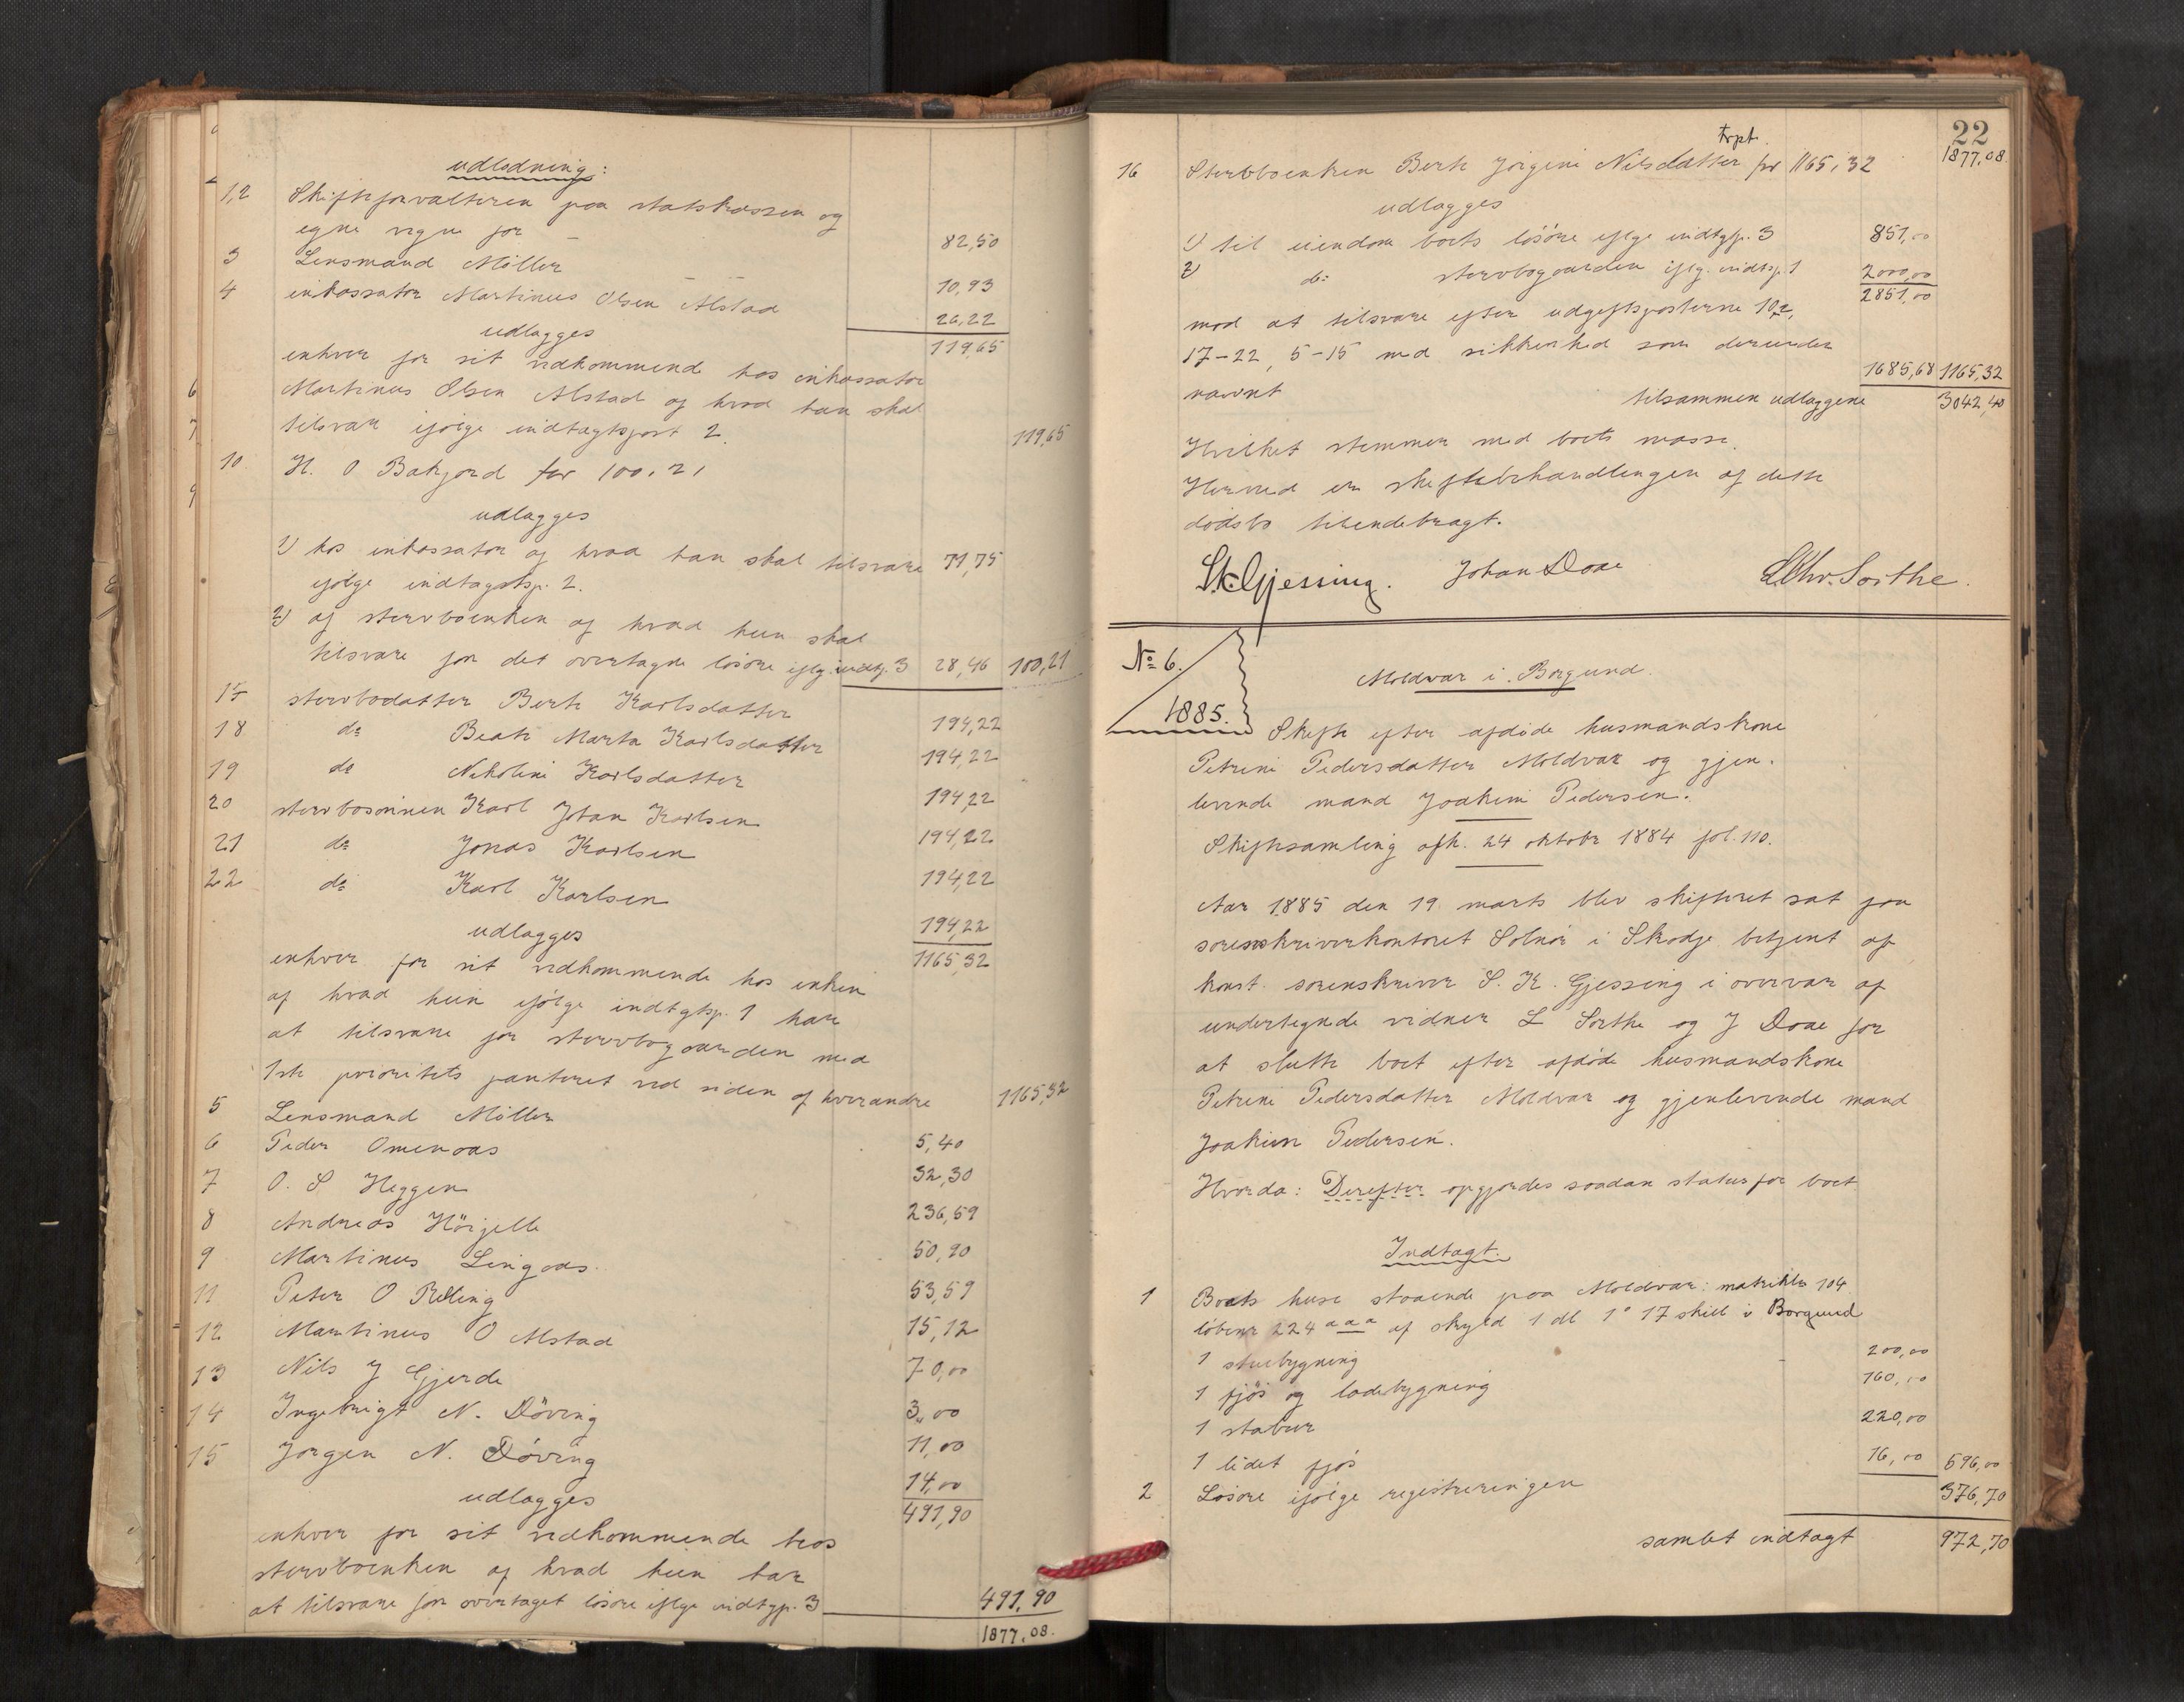 udlodning:
1,2 Skifteforvalteren paa statskassen og
egne vegne for 82,50
3 Lensmand Möller 10,93
4 inkassator Martinus Olsen Alstad 26,22
udlægges 119,65
enhver for sit vedkommende hos inkassator
Martinus Olsen Alstad og hvad han skal
tilsvare ifølge indtægtspost 2. 119,65
10 H. O Bakfjord for 100,21
udlægges
1) hos inkassator og hvad han skal tilsvare 71,75
ifølge indtægtsp. 2.
2) af stervboenken og hvad hun skal
tilsvare for det overtagne løsøre iflg. indtg. 3 28,46 100,21
stervbodatter Berte Karlsdatter 194,22
18 do Beate Marta Karlsdatter 194,22
19 do Nikoline Karlsdatter 194,22
20 stervbosönnen Karl Johan Karlsen 194,22
21 do Jonas Karlsen 194,22
22 do Karl Karlsen 194,22
udlægges 1165,32
enhver for sit vedkommende hos enken
af hvad hun ifølge indtgtsp. 1 har
at tilsvare for stervbogaarden med
1ste prioritets panteret ved siden af hverandre 1165,32
5 Lensmand Möller 5,40
6 Peder Omenaas 32,30
7 O. S Heggen 236,59
8 Andreas Hörjelle 50,90
9 Martinus Lingaas 53,59
11 Peter O Relling 15,12
12 Martinus O Alstad 70,00
13 Nils J Gjerde 3,00
14 Ingebrigt N. Döving 11,00
15 Jørgen N. Döving 14,00
udlægges 491,90
enhver for sit vedkommende hos
stervboenken og hvad hun har
at tilsvare for overtaget løsøre iflge indtgp. 3 491,90
1877,08.
22
Trpt. 1877,08
16 Stervboenken Berte Jörgine Nilsdatter for 1165,32
udlægges
1) til eiendom boets lösöre iflge indtgp. 3 851,00
2) do stervbogaarden iflg. indtgp. 1 2000,00
2851,00
mod at tilsvare efter udgiftsposterne 10,
17-22, 5-15 med sikkerhed som derunder
nævnt 1685,68 1165,32
tilsammen udlæggene 3042,40
Hvilket stemmer med boets masse.
Hermed er skiftebehandlingen af dette
dødsbo tilendebragt.
S.K. Gjessing. Johan Doae L Chr. Sorthe.
No 6.
1885.
Moldvær i Borgund.
Skifte efter afdöde husmandskone
Petrine Pedersdatter Moldvær og gjen-
levende mand Joakim Pedersen.
Skiftesamling afh. 24 oktobr 1884 fol. 110.
Aar 1885 den 19 marts blev skifteret sat paa
sorenskriverkontoret Solnör i Skodje betjent af
konst. sorenskriver S. K. Gjessing i overvær af
undertegnede vidner L Sorthe og J Doae for
at slutte boet efter afdöde husmandskone
Petrine Pedersdatter Moldvær og gjenlevende mand
Joakim Pedersen.
Hvorda: Derefter opgjordes saadan status for boet
Indtægt.
1 Boets huse staaende paa Moldvær: matrikler 104
löbenr 224 a a a af skyld 1 dl 1 o 17 skill i Borgund
1 stuebygning 200,00
1 fjös og ladebygning 160,00
1 stabur 220,00
1 lidet fjös 16,00 596,00
2 Lösöre ifølge registreringen 376,70
samlet indtægt 972,70